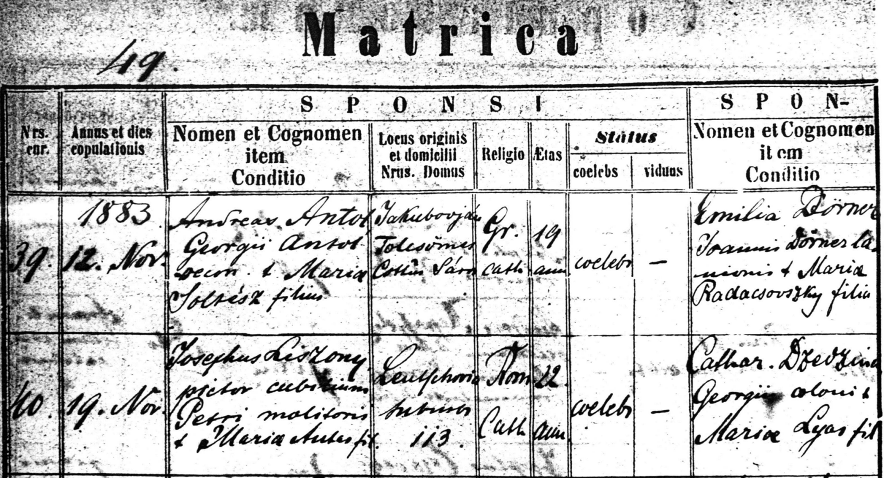 Matrica
49.
SPONSI
SPON-
Nrs. cur.
Annus et dies copulationis
Nomen et Cognomen
item
Conditio
Locus originis
et domicilii
Nrus. Domus
Religio
Ætas
Status
coelebs
viduus
Nomen et Cognomen
item
Conditio
39.
1883
12. Nov.
Andreas Antol
Georgii Antol
oecon. & Maria
Soltész filius
Jakubovján
Tolcsömes
Cottus Sáros
Gr.
cath
19
ann
coelebs
—
Emilia Dörner
Joannis Dörner la-
nionis & Maria
Radacsovszky filia
40.
19. Nov.
Josephus Liszony
pictor cubilium
Petri molitoris
& Maria Antas fil
Leutschovia
113
Rom
Cath
22
ann
coelebs
—
Cathar. Dzedzina
Georgii coloni &
Maria Lyas fil